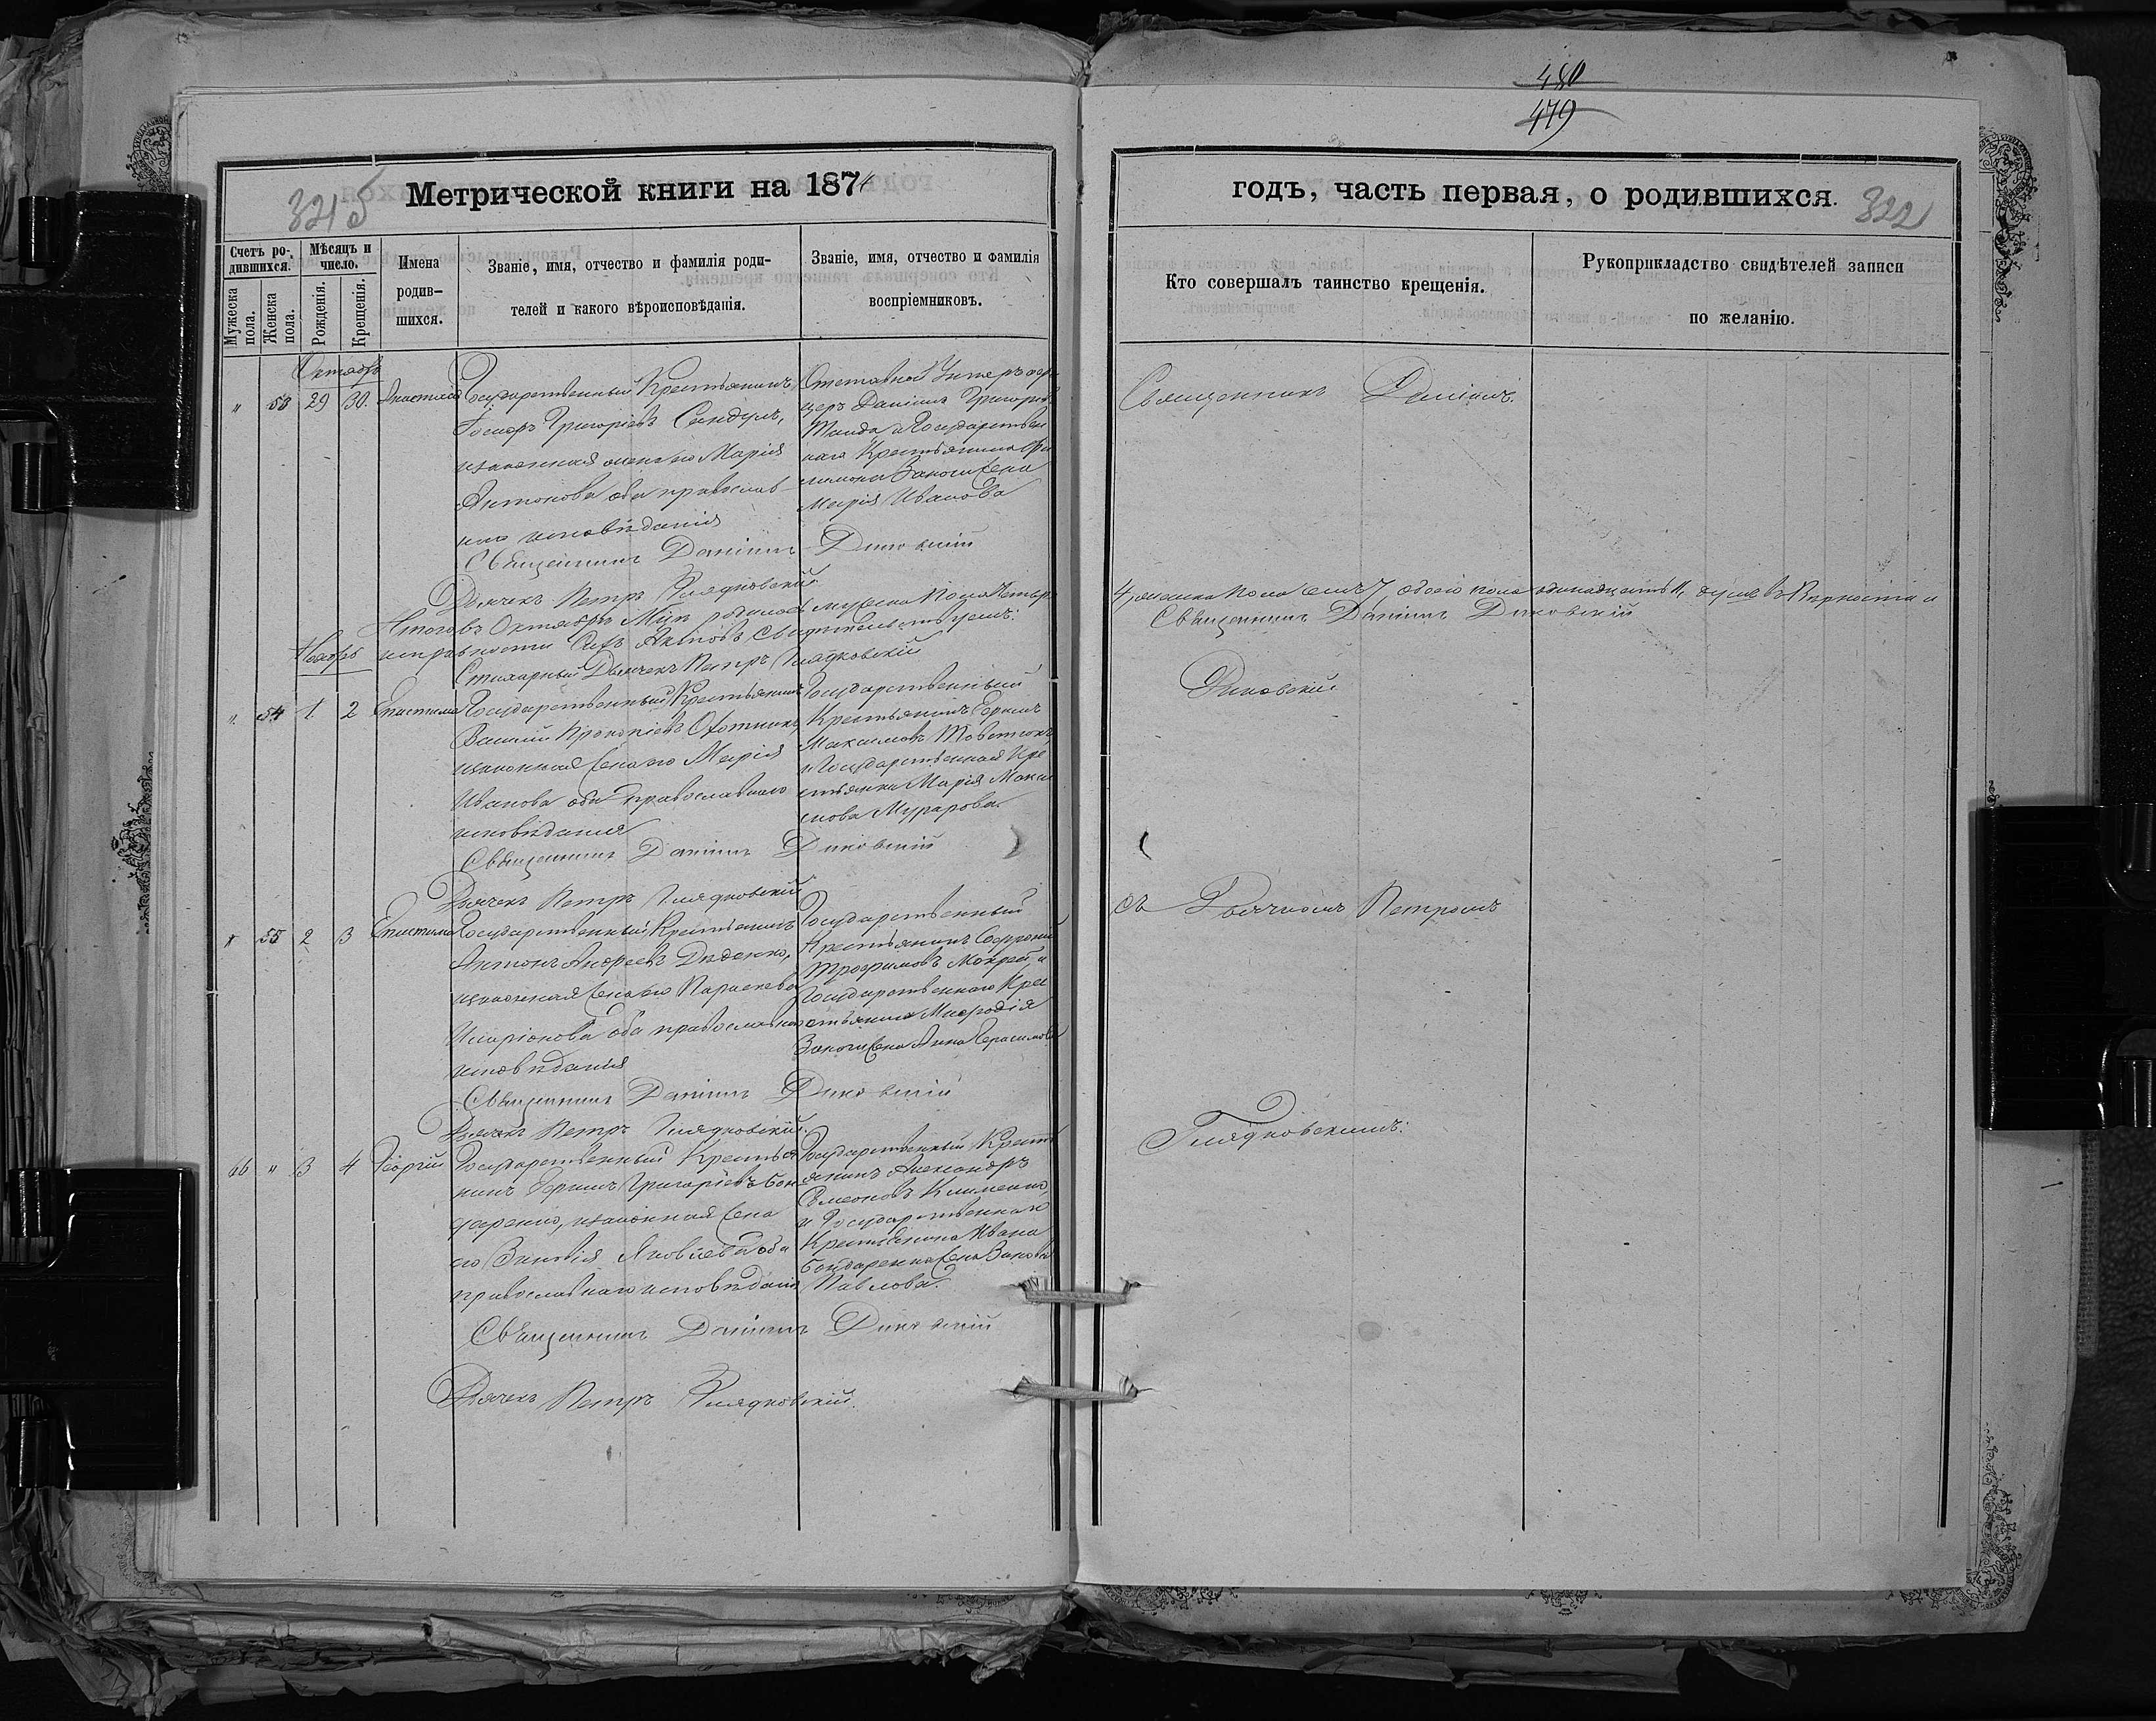 480
479
321 об
Метрической книги на 1874
Счетъ ро-
дившихся.
Мѣсяцъ и
число.
Мужеска
пола.
Женска
пола.
Рожденія.
Крещенія.
Имена
родив-
шихся.
Званіе, имя, отчество и фамилія роди-
телей и какого вѣроисповѣданія.
Званіе, имя, отчество и фамилія
воспріемниковъ.
Октябрь
" 53 29 30. Анастасія
Государственный Крестьянинъ
Іосифъ Григоріевъ Сандулъ,
и законная жена его Марія
Антонова оба православ-
наго исповѣданія
Отставной Унтеръ офи
церъ Даніилъ Григорьев
и Государствен
наго Крестьянина Фи
лимона Закон жена
Марія Иванова
Священникъ Даніилъ Диковскій
Дьячекъ Петръ Глядковскій
Итого въ Октябрѣ М-цѣ родилось мужеска пола четыре
исправности сихъ Актовъ Свидѣтельствуемъ:
Стихарный Дьячекъ Петръ Глядковскій
Ноябрь
" 54 1. 2 Епистима
Государственный Крестьянинъ
Василій Прокопіевъ Охотникъ,
и законная жена его Марія
Иванова оба православнаго
исповѣданія
Государственный
Крестьянинъ Герасим
Максимовъ
и Государственная Кре
стьянка Марія Макси
мова Мурарова
Священникъ Даніилъ Диковскій
Дьячекъ Петръ Глядковскій
" 55 2 3 Епистима
Государственный Крестьянинъ
Антонъ Андреевъ Диденко,
и законная жена его Параскева
Иларіонова оба православнаго
исповѣданія
Государственный
Крестьянинъ Софроній
Трофимовъ и
Государственнаго Кре
стьянина Мефодія
Закон жена Анна Герасимова
Священникъ Даніилъ Диковскій
Дьячекъ Петръ Глядковскій.
66 " 3 4 Георгій
Государственный Крестья
нинъ Герасим Григоріевъ Бон
даренко, и законная жена
его Зиновія Яковлева оба
православнаго исповѣданія
Государственный Крест
янинъ Александръ
Симеоновъ Клименко,
и Государственнаго
Крестьянина Ивана
Бондаренка жена
Павлова.
Священникъ Даніилъ Диковскій
Дьячекъ Петръ Глядковскій.
годъ, часть первая, о родившихся.
322
Кто совершалъ таинство крещенія.
Рукоприкладство свидѣтелей записи
по желанію.
Священникъ Даніилъ
4, женска пола семь 7, обоего пола одинадцать 11, душъ въ Вѣрности и
Священникъ Даніилъ Диковскій
Диковскій
съ Дьячкомъ Петромъ
Глядковскимъ.